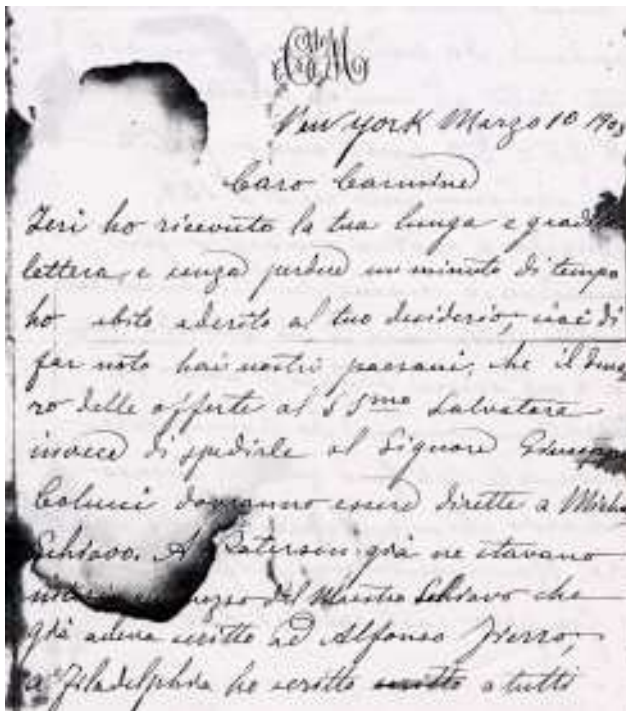 New York Marzo 10 190
Caro Carmine
Ieri ho ricevuto la tua lunga e
lettera, e senza perdere un minuto di tempo
ho subito aderito al tuo desiderio, cioè di
far noto hai nostri paesani, che il dena
ro delle offerte al SSmo Salvatore
invece di spedirle al Signore Giuseppe
Colucci dovranno essere dirette a Miche
Schiavo. A Paterson già ne stavano
mezzo del Maestro Schiavo che
già aveva scritto ad Alfonso Fierro,
a Filadelphia ho scritto a tutti